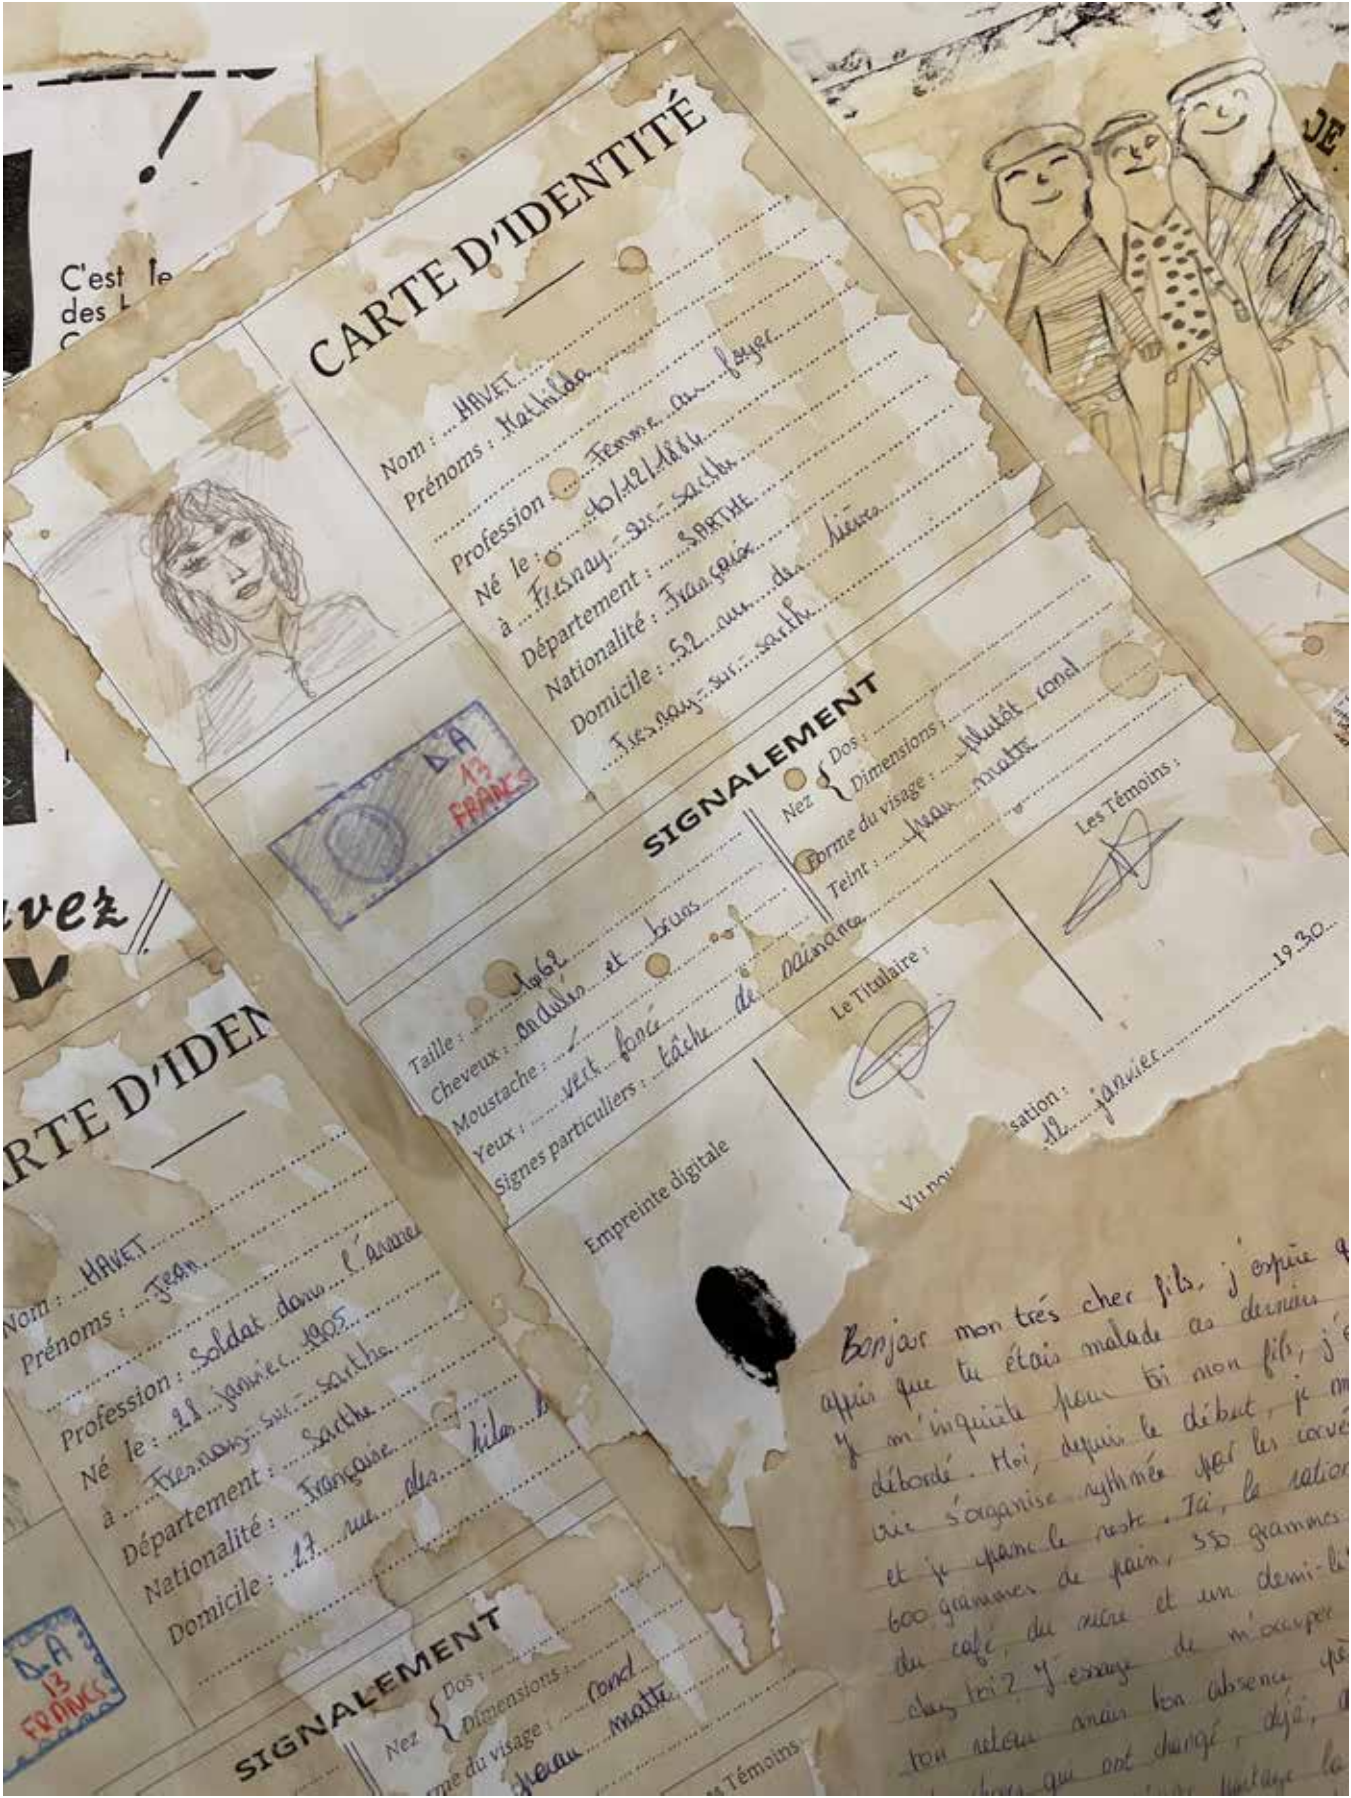 !
C'est le
des
vez
JE
CARTE D'IDENTITÉ
Nom : HAVET
Prénoms : Mathilda
Profession : Femme au foyer
Né le : 10/12/1884
à Fresnay-sur-sarthe
Département : SARTHE
Nationalité : Française
Domicile : 52 rue des lièvres
Fresnay-sur-sarthe
D.A
13
FRANCS
SIGNALEMENT
Taille : 1,62
Cheveux : ondulés et bruns
Moustache : /
Yeux : vert foncé
Signes particuliers : tâche de naissance
Nez { Dos :
Dimensions :
Forme du visage : plutôt rond
Teint : peau matte
Empreinte digitale
Le Titulaire :
Les Témoins :
Vu pou
sation :
12 janvier 1930
RTE D'IDEN
Nom : HAVET
Prénoms : Jean
Profession : Soldat dans l'armée
Né le : 28 janvier 1905
à Fresnay-sur-sarthe
Département : Sarthe
Nationalité : Française
Domicile : 27 rue des lilas
D.A
13
FRANCS
SIGNALEMENT
Nez { Dos :
Dimensions :
rme du visage : rond
peau matte
s Témoins
Bonjour mon très cher fils, j'espère q
appris que tu étais malade ces derniers
m'inquiète pour toi mon fils, j'e
débordé. Moi, depuis le début, je m
vie s'organise rythmée par les corvé
et je passe le reste. Ici, la ration
600 grammes de pain, 350 grammes
du café, du sucre et un demi-li
chez toi ? J'essaye de m'occuper
ton retour mais ton absence
choses qui ont changé, déjà,
partage la